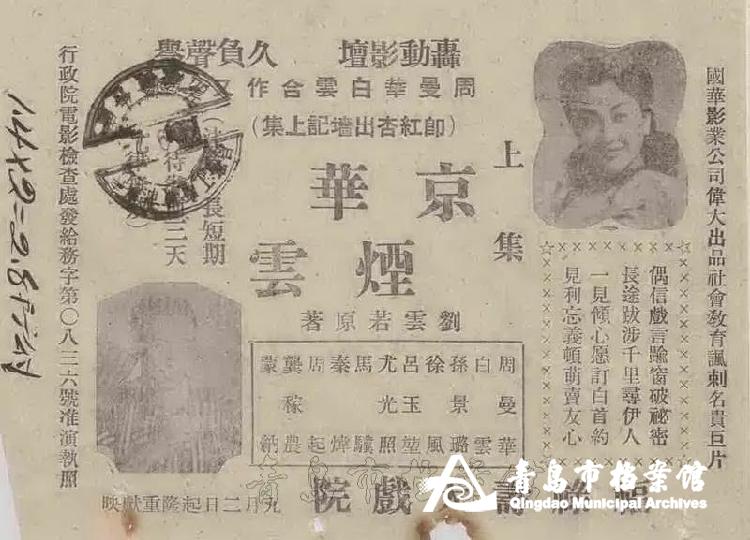 國華影業公司偉大出品社會教育諷刺名貴巨片
轟動影壇 久負聲譽
周曼華白雲合作
(即紅杏出墻記上集)
上集
京華
煙雲
劉雲若原著
偶信戲言踰窗破祕密
長途跋涉千里尋伊人
一見傾心愿訂白首約
見利忘義頓萌賣友心
周曼華
白雲
孫景璐
徐風
呂玉堃
尤光照
馬驥
秦
周起
龔稼農
蒙納
長短期
三天
戲院
九月二日起隆重獻映
行政院電影檢查處發給務字第〇八三六號准演執照
1.4×2=2.8
青岛市档案馆
Qingdao Municipal Archives